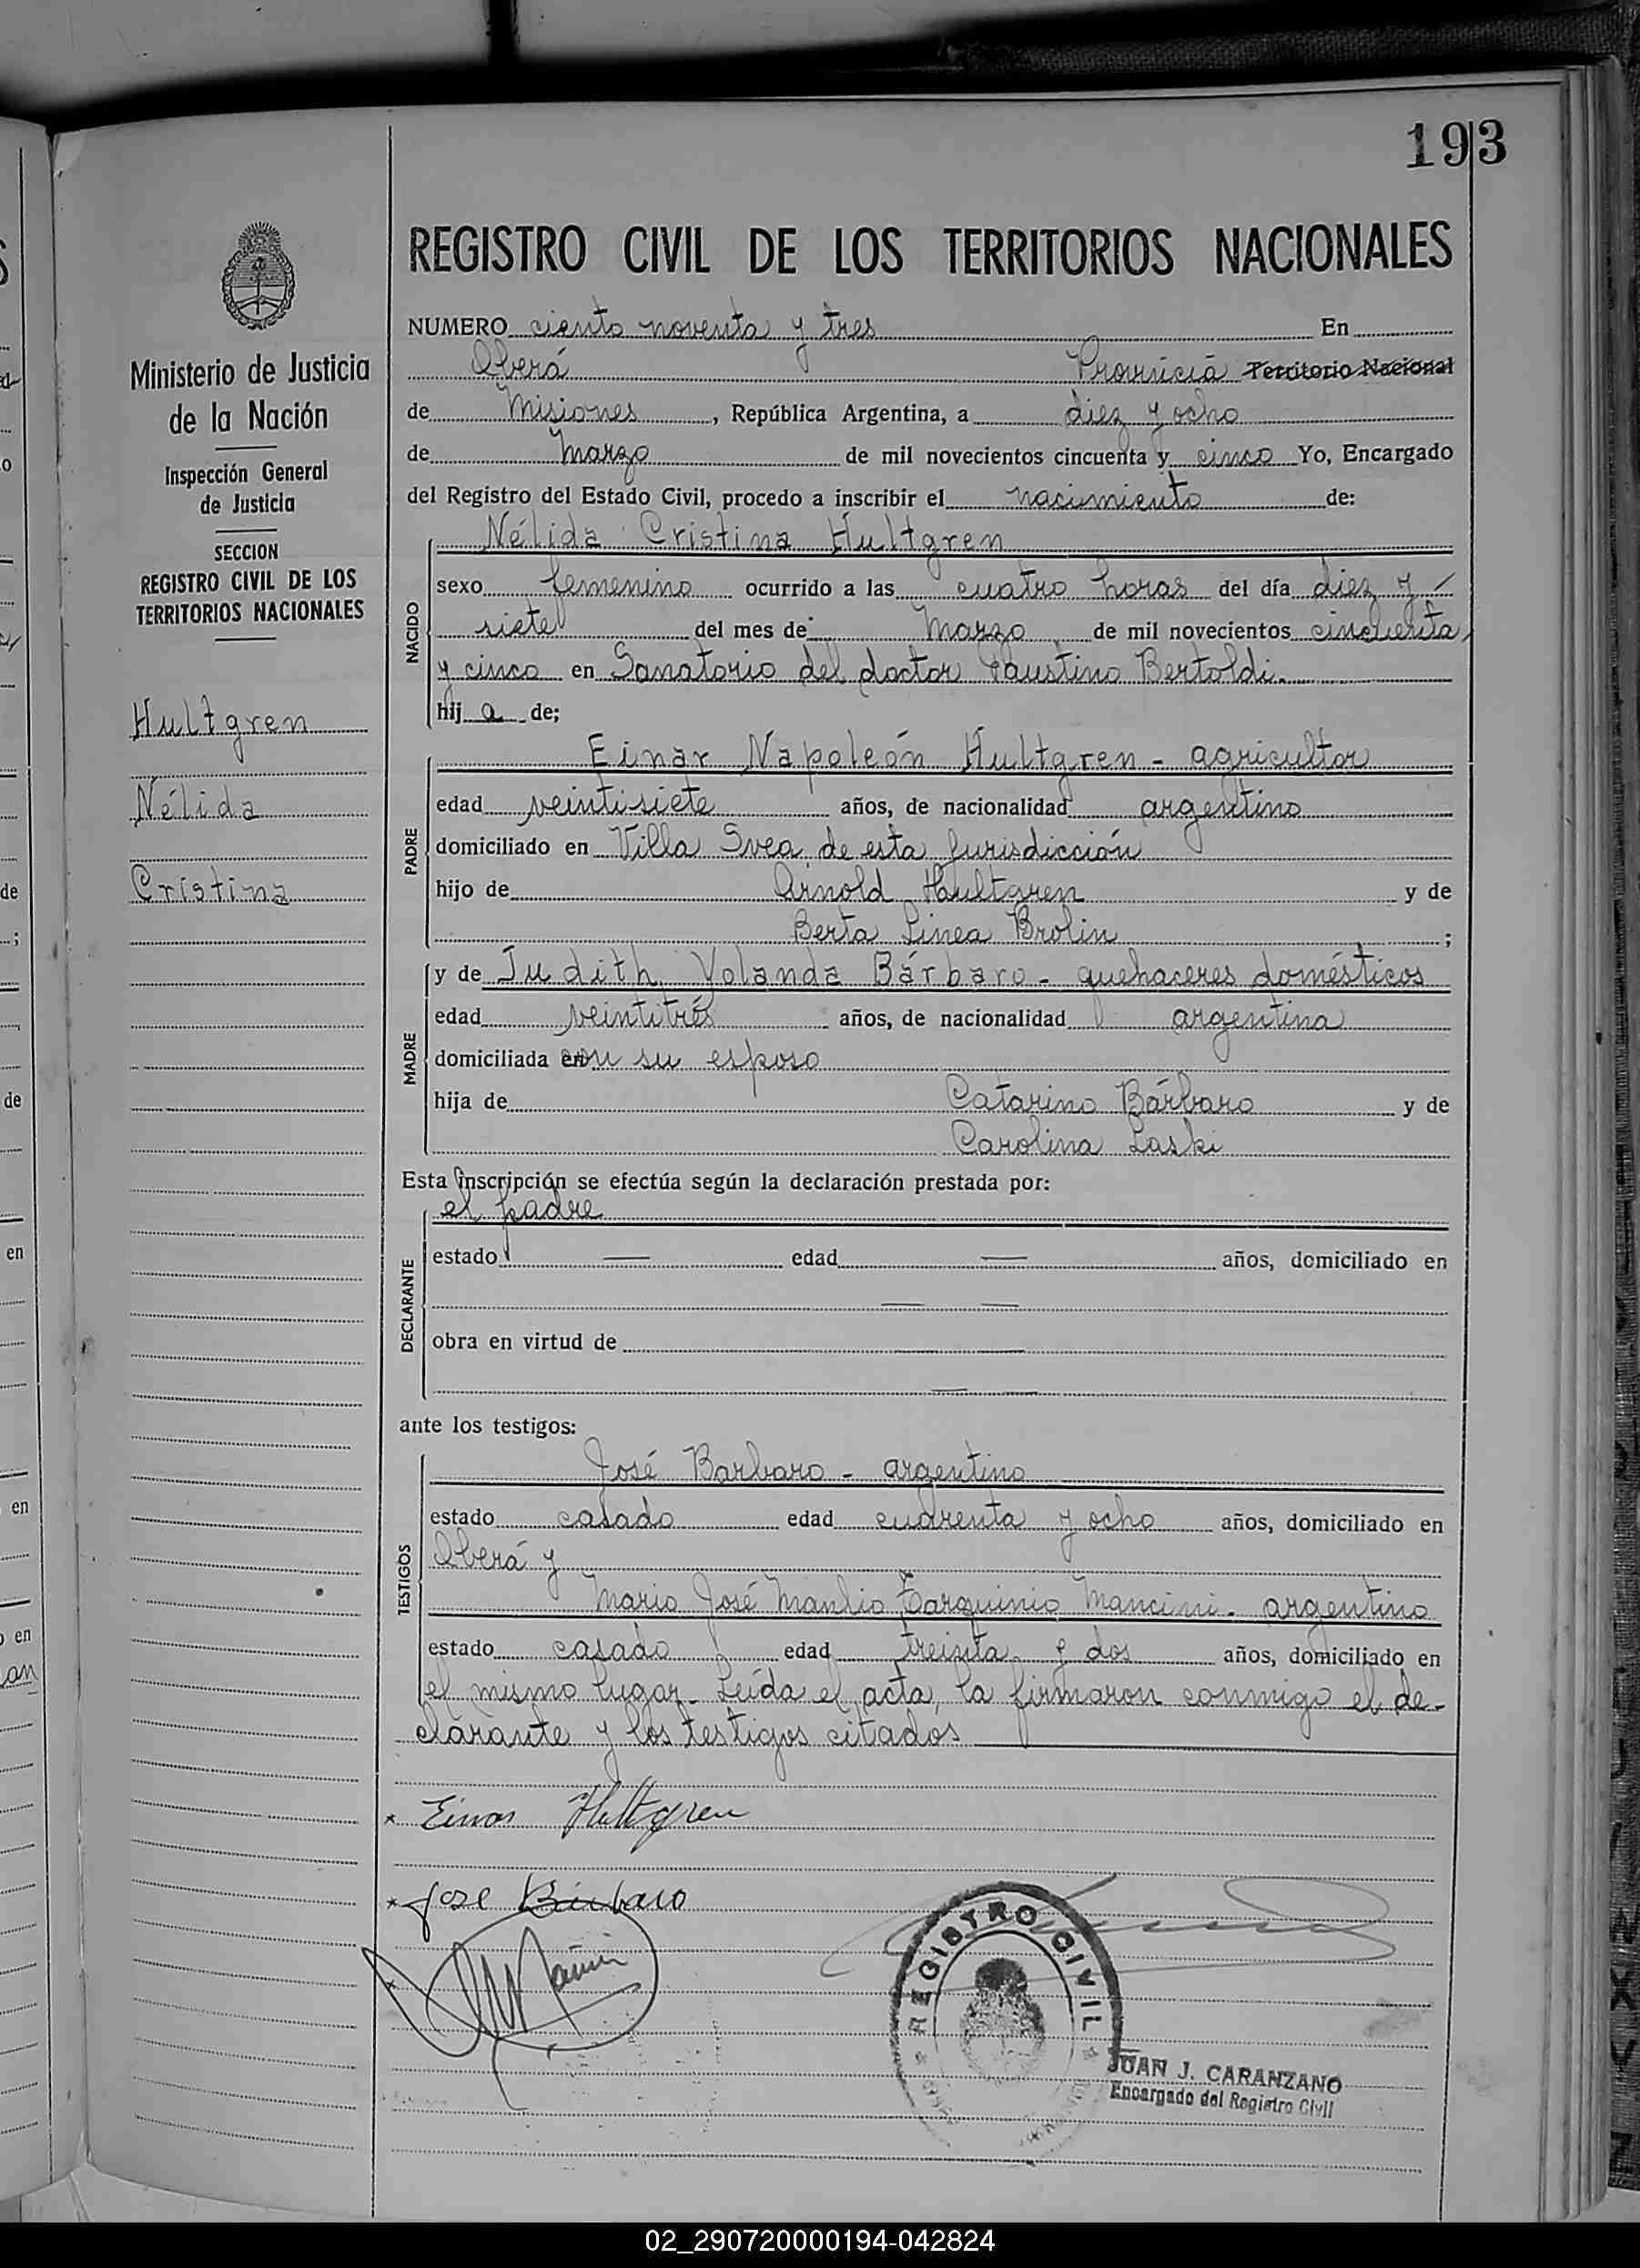 193
REGISTRO CIVIL DE LOS TERRITORIOS NACIONALES
NUMERO ciento noventa y tres En
Oberá Provincia Territorio Nacional
de Misiones, República Argentina, a diez y ocho
de Marzo de mil novecientos cincuenta y cinco Yo, Encargado
del Registro del Estado Civil, procedo a inscribir el nacimiento de:
Nélida Cristina Hultgren
NACIDO
sexo femenino ocurrido a las cuatro horas del día diez y
siete del mes de Marzo de mil novecientos cincuenta
y cinco en Sanatorio del doctor Faustino Bertoldi.
hij a de;
Einar Napoleón Hultgren - agricultor
PADRE
edad veintisiete años, de nacionalidad argentino
domiciliado en Villa Svea de esta Jurisdicción
hijo de Arnold Hultgren y de
Berta Linea Brolin ;
y de Judith Yolanda Bárbaro - quehaceres domésticos
MADRE
edad veintitrés años, de nacionalidad argentina
domiciliada con su esposo
hija de Catarino Bárbaro y de
Carolina Laski
Esta inscripción se efectúa según la declaración prestada por:
el padre
DECLARANTE
estado — edad — años, domiciliado en
— —
obra en virtud de — —
— —
ante los testigos:
José Barbaro - argentino
TESTIGOS
estado casado edad cuarenta y ocho años, domiciliado en
Oberá y
Mario José Manlio Tarquinio Mancini - argentino
estado casado edad treinta y dos años, domiciliado en
el mismo lugar - Leída el acta, la firmaron conmigo el de-
clarante y los testigos citados
Einar Hultgren
Jose Bárbaro
REGISTRO CIVIL
JUAN J. CARANZANO
Encargado del Registro Civil
Ministerio de Justicia
de la Nación
Inspección General
de Justicia
SECCION
REGISTRO CIVIL DE LOS
TERRITORIOS NACIONALES
Hultgren
Nélida
Cristina
02_290720000194-042824